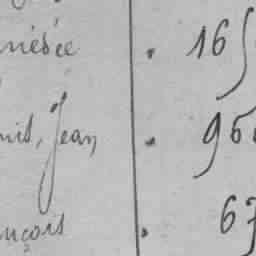 nésée . 16
nis, Jean . 96
nçois . 67